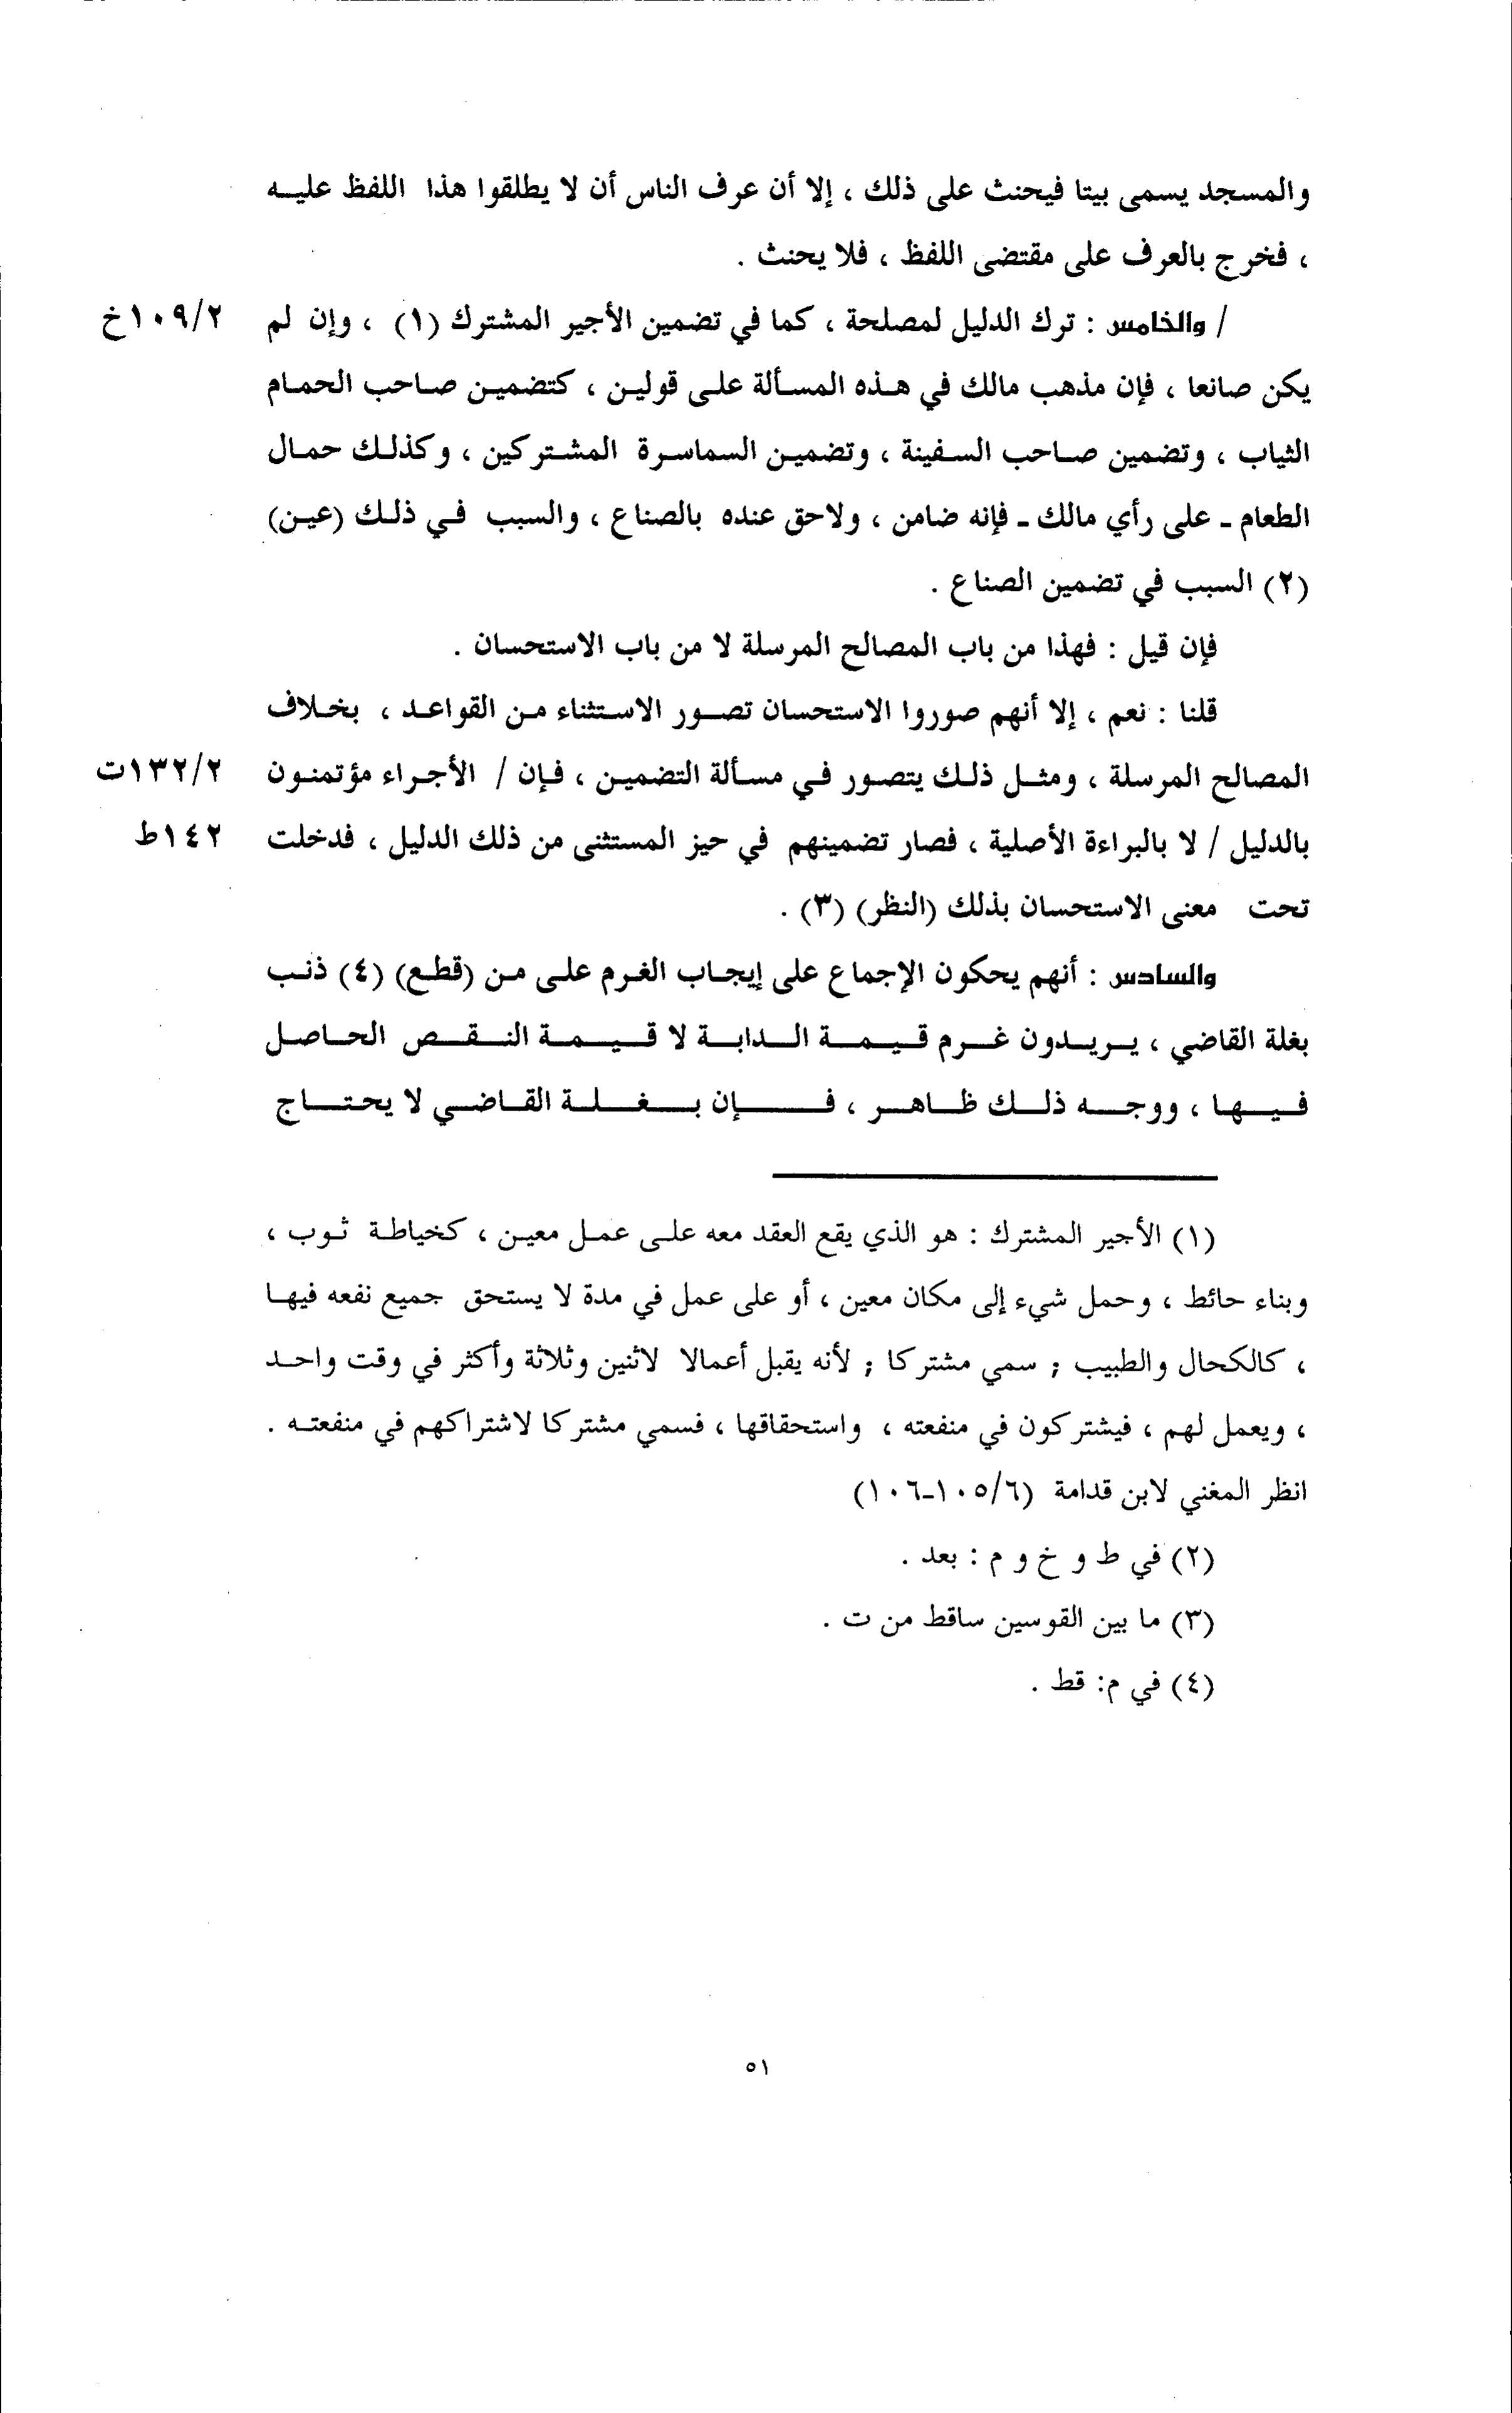 والمسجد يسمى بيتا فيحنث على ذلك ، إلا أن عرف الناس أن لا يطلقوا هذا اللفظ عليه
، فخرج بالعرف على مقتضى اللفظ ، فلا يحنث .
/ والخامس : ترك الدليل لمصلحة ، كما في تضمين الأجير المشترك (١) ، وإن لم ١٠٩/٢خ
يكن صانعا ، فإن مذهب مالك في هذه المسألة على قولين ، كتضمين صاحب الحمام
الثياب ، وتضمين صاحب السفينة ، وتضمين السماسرة المشتركين ، وكذلك حمال
الطعام ـ على رأي مالك ـ فإنه ضامن ، ولاحق عنده بالصناع ، والسبب في ذلك (عين)
(٢) السبب في تضمين الصناع .
فإن قيل : فهذا من باب المصالح المرسلة لا من باب الاستحسان .
قلنا : نعم ، إلا أنهم صوروا الاستحسان تصور الاستثناء من القواعد ، بخلاف
المصالح المرسلة ، ومثل ذلك يتصور في مسألة التضمين ، فإن / الأجراء مؤتمنون ١٣٢/٢ت
بالدليل / لا بالبراءة الأصلية ، فصار تضمينهم في حيز المستثنى من ذلك الدليل ، فدخلت ١٤٢ط
تحت معنى الاستحسان بذلك (النظر) (٣) .
والسادس : أنهم يحكون الإجماع على إيجاب الغرم على من (قطع) (٤) ذنب
بغلة القاضي ، يريدون غرم قيمة الدابة لا قيمة النقص الحاصل
فيها ، ووجه ذلك ظاهر ، فإن بغلة القاضي لا يحتاج
(١) الأجير المشترك : هو الذي يقع العقد معه على عمل معين ، كخياطة ثوب ،
وبناء حائط ، وحمل شيء إلى مكان معين ، أو على عمل في مدة لا يستحق جميع نفعه فيها
، كالكحال والطبيب ; سمي مشتركا ; لأنه يقبل أعمالا لاثنين وثلاثة وأكثر في وقت واحد
، ويعمل لهم ، فيشتركون في منفعته ، واستحقاقها ، فسمي مشتركا لاشتراكهم في منفعته .
انظر المغني لابن قدامة (١٠٥/٦-١٠٦)
(٢) في ط و خ و م : بعد .
(٣) ما بين القوسين ساقط من ت .
(٤) في م: قط .
٥١